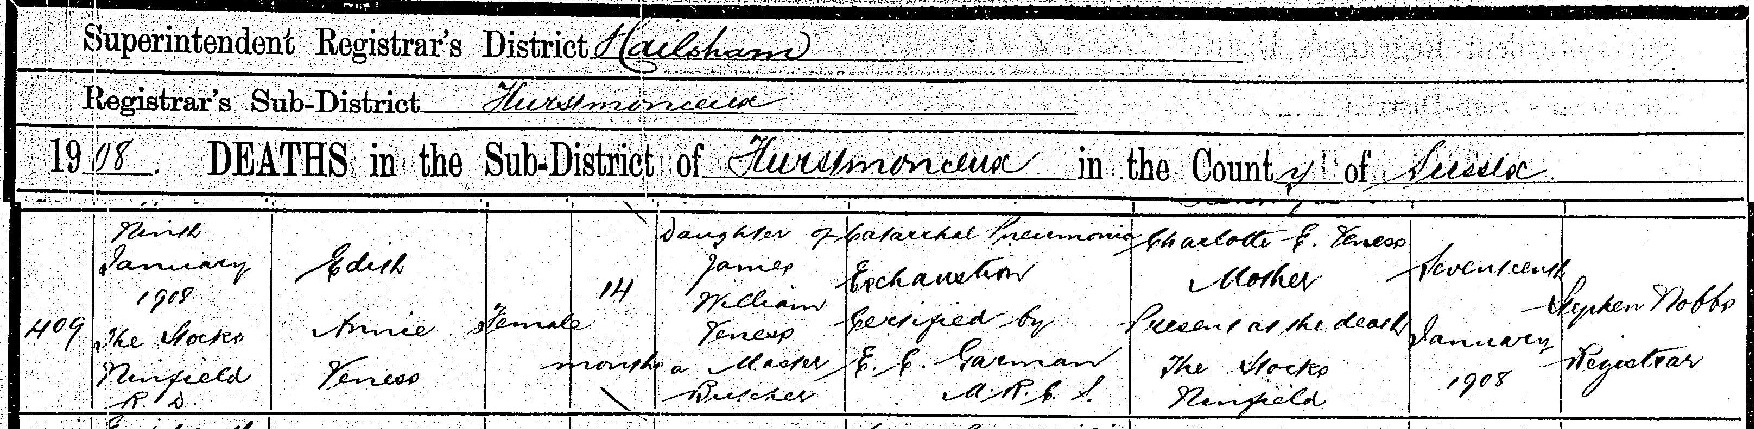 Superintendent Registrar's District Hailsham
Registrar's Sub-District Hurstmonceux
1908. DEATHS in the Sub-District of Hurstmonceux in the County of Sussex
409
Ninth
January
1908
The Stocks
Ninfield
R D
Edith
Annie
Veness
Female
14
months
Daughter of
James
William
Veness
a Master
Butcher
Catarrhal Pneumonia
Exhaustion
Certified by
E. C. Garman
M.R.C.S.
Charlotte E. Veness
Mother
Present at the death
The Stocks
Ninfield
Seventeenth
January
1908
Stephen Nobbs
Registrar